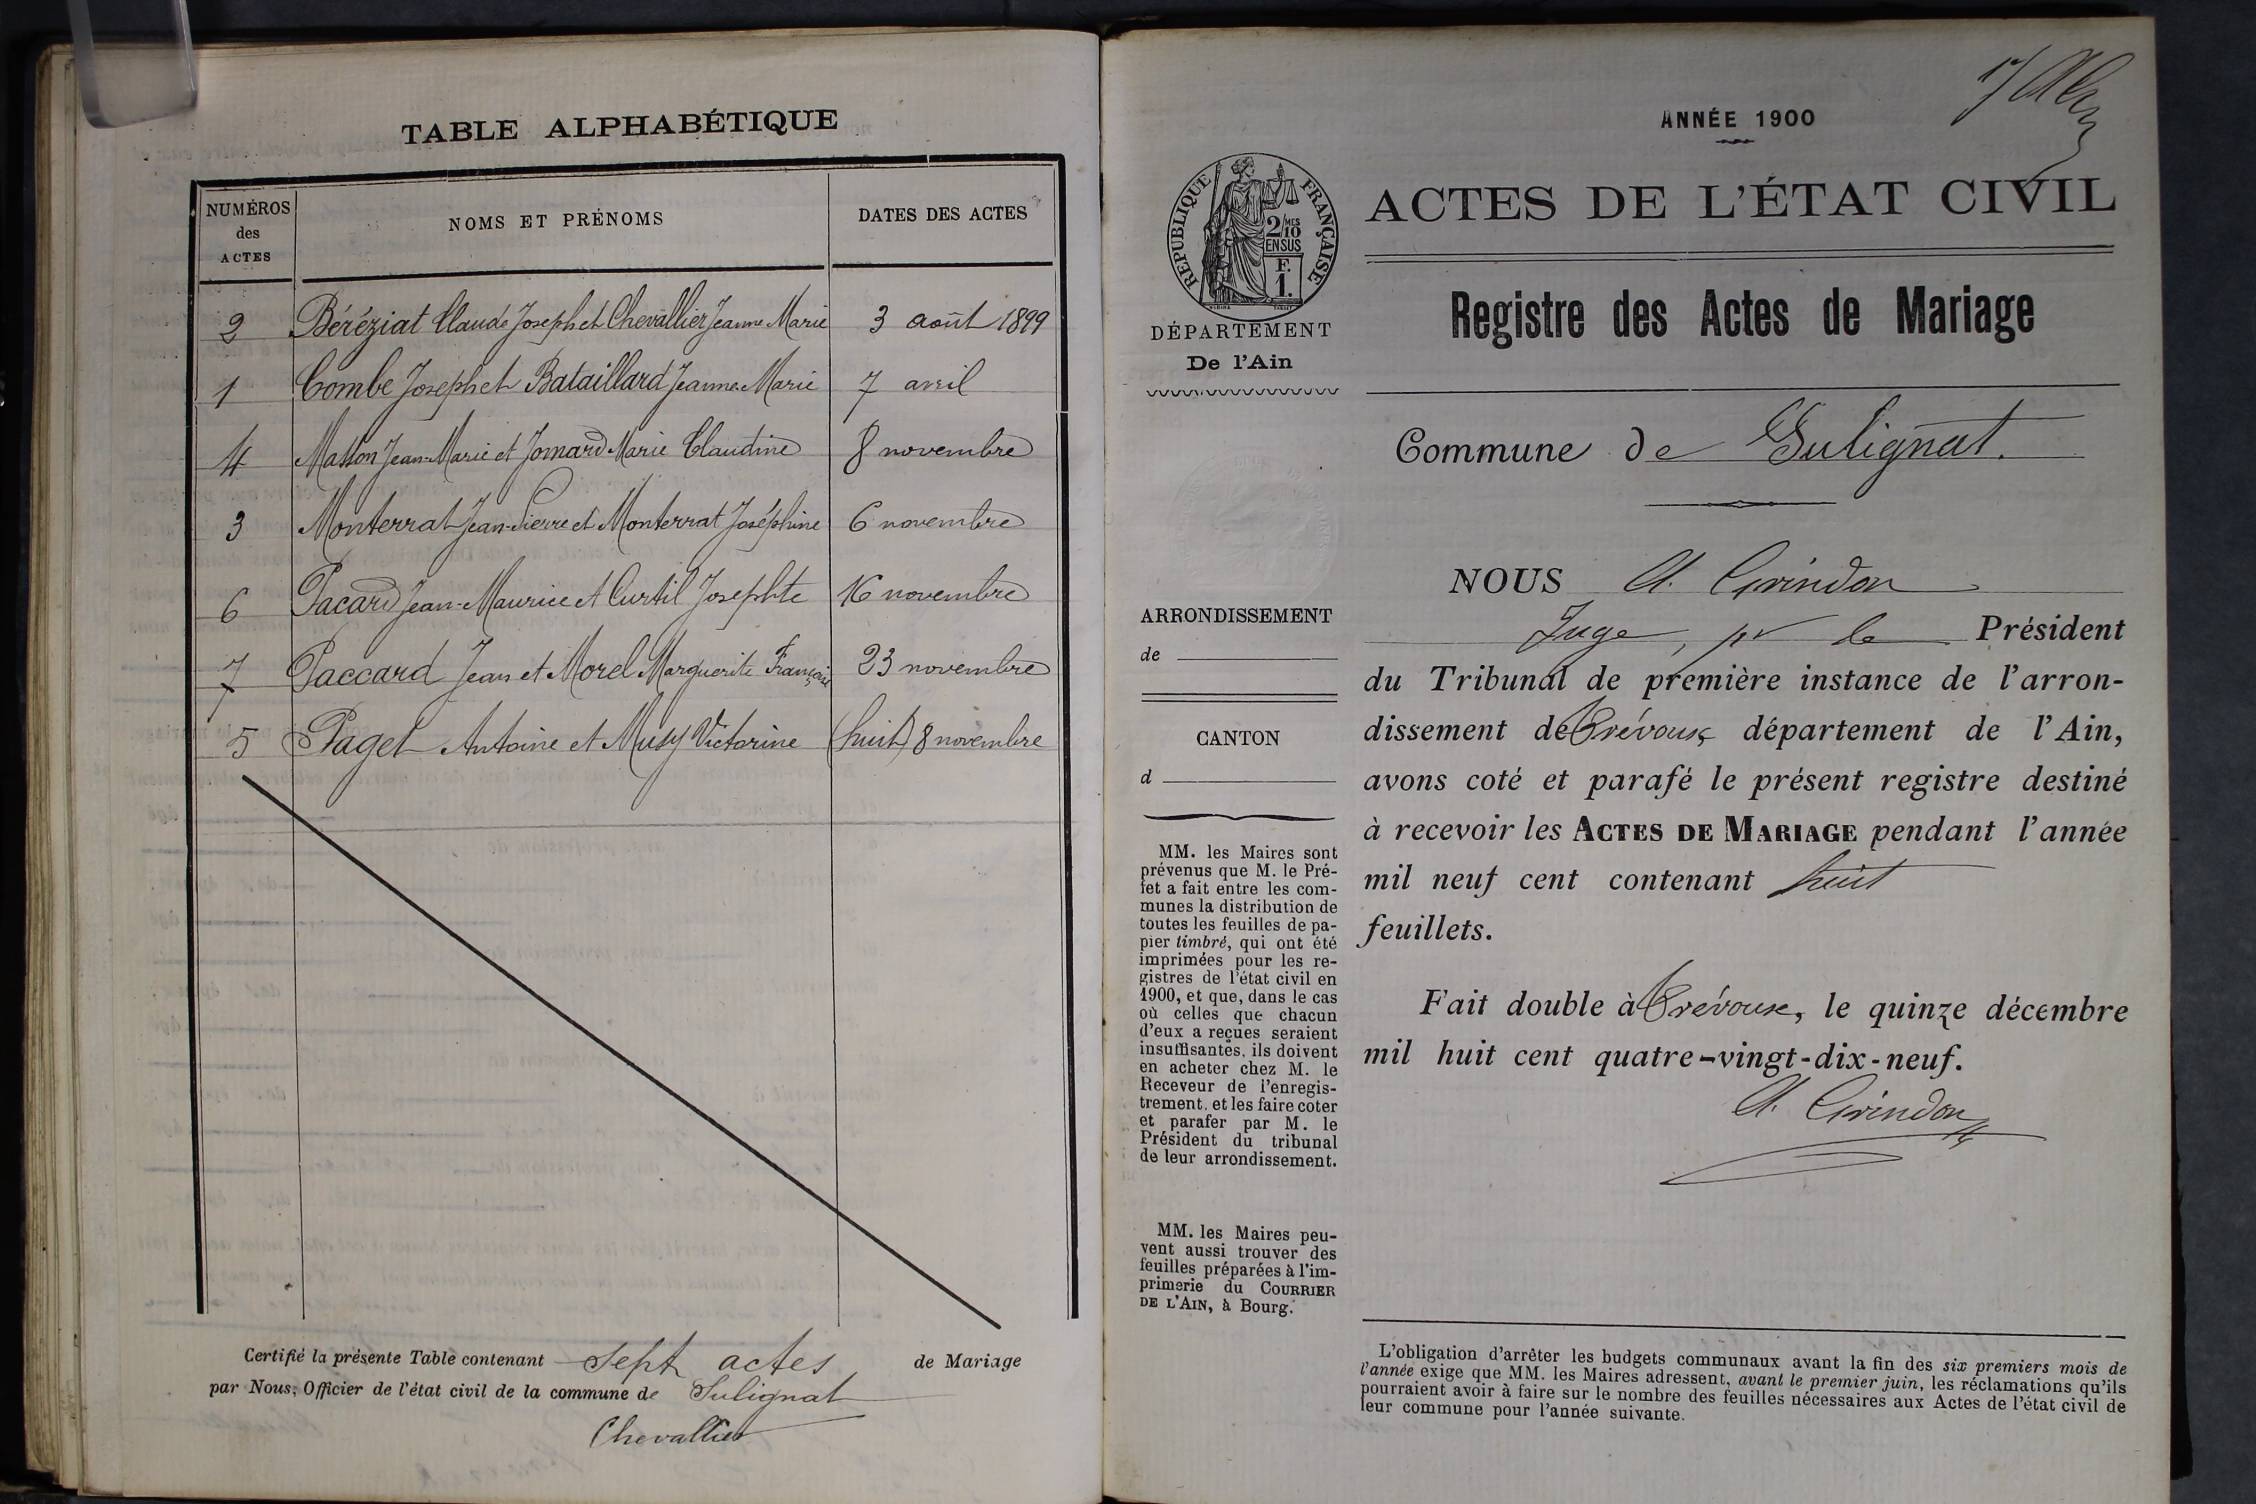 TABLE ALPHABÉTIQUE
NUMÉROS des ACTES
NOMS ET PRÉNOMS
DATES DES ACTES
2 Béréziat Claude Joseph et Chevallier Jeanne Marie 3 août 1899
1 Combe Joseph et Bataillard Jeanne Marie 7 avril
4 Masson Jean-Marie et Jomard Marie Claudine 8 novembre
3 Monterrat Jean-Pierre et Monterrat Joséphine 6 novembre
6 Pacard Jean-Maurice et Curtil Josephte 16 novembre
7 Paccard Jean et Morel Marguerite Françoise 23 novembre
5 Paget Antoine et Musy Victorine (huit) 8 novembre
Certifié la présente Table contenant sept actes de Mariage
par Nous, Officier de l'état civil de la commune de Sulignat
Chevallier
ANNÉE 1900
RÉPUBLIQUE FRANÇAISE
2/10 MES
EN SUS
F.
1.
DÉPARTEMENT
De l'Ain
ARRONDISSEMENT
de
CANTON
d
MM. les Maires sont
prévenus que M. le Pré-
fet a fait entre les com-
munes la distribution de
toutes les feuilles de pa-
pier timbré, qui ont été
imprimées pour les re-
gistres de l'état civil en
1900, et que, dans le cas
où celles que chacun
d'eux a reçues seraient
insuffisantes, ils doivent
en acheter chez M. le
Receveur de l'enregis-
trement, et les faire coter
et parafer par M. le
Président du tribunal
de leur arrondissement.
MM. les Maires peu-
vent aussi trouver des
feuilles préparées à l'im-
primerie du COURRIER
DE L'AIN, à Bourg.
ACTES DE L'ÉTAT CIVIL
Registre des Actes de Mariage
Commune de Sulignat.
NOUS A. Grindon
Juge, pr le Président
du Tribunal de première instance de l'arron-
dissement de Trévoux département de l'Ain,
avons coté et parafé le présent registre destiné
à recevoir les ACTES DE MARIAGE pendant l'année
mil neuf cent contenant huit
feuillets.
Fait double à Trévoux, le quinze décembre
mil huit cent quatre-vingt-dix-neuf.
A. Grindon
L'obligation d'arrêter les budgets communaux avant la fin des six premiers mois de
l'année exige que MM. les Maires adressent, avant le premier juin, les réclamations qu'ils
pourraient avoir à faire sur le nombre des feuilles nécessaires aux Actes de l'état civil de
leur commune pour l'année suivante.